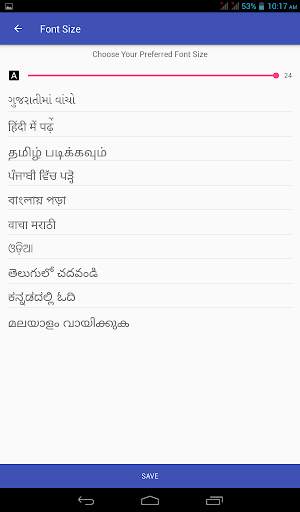 53% 10:17 AM
Font Size
Choose Your Preferred Font Size
A 24
ગુજરાતીમાં વાંચો
हिंदी में पढ़ें
தமிழ் படிக்கவும்
ਪੰਜਾਬੀ ਵਿੱਚ ਪੜ੍ਹੋ
বাংলায় পড়া
वाचा मराठी
ଓଡ଼ିଆ
తెలుగులో చదవండి
ಕನ್ನಡದಲ್ಲಿ ಓದಿ
മലയാളം വായിക്കുക
SAVE